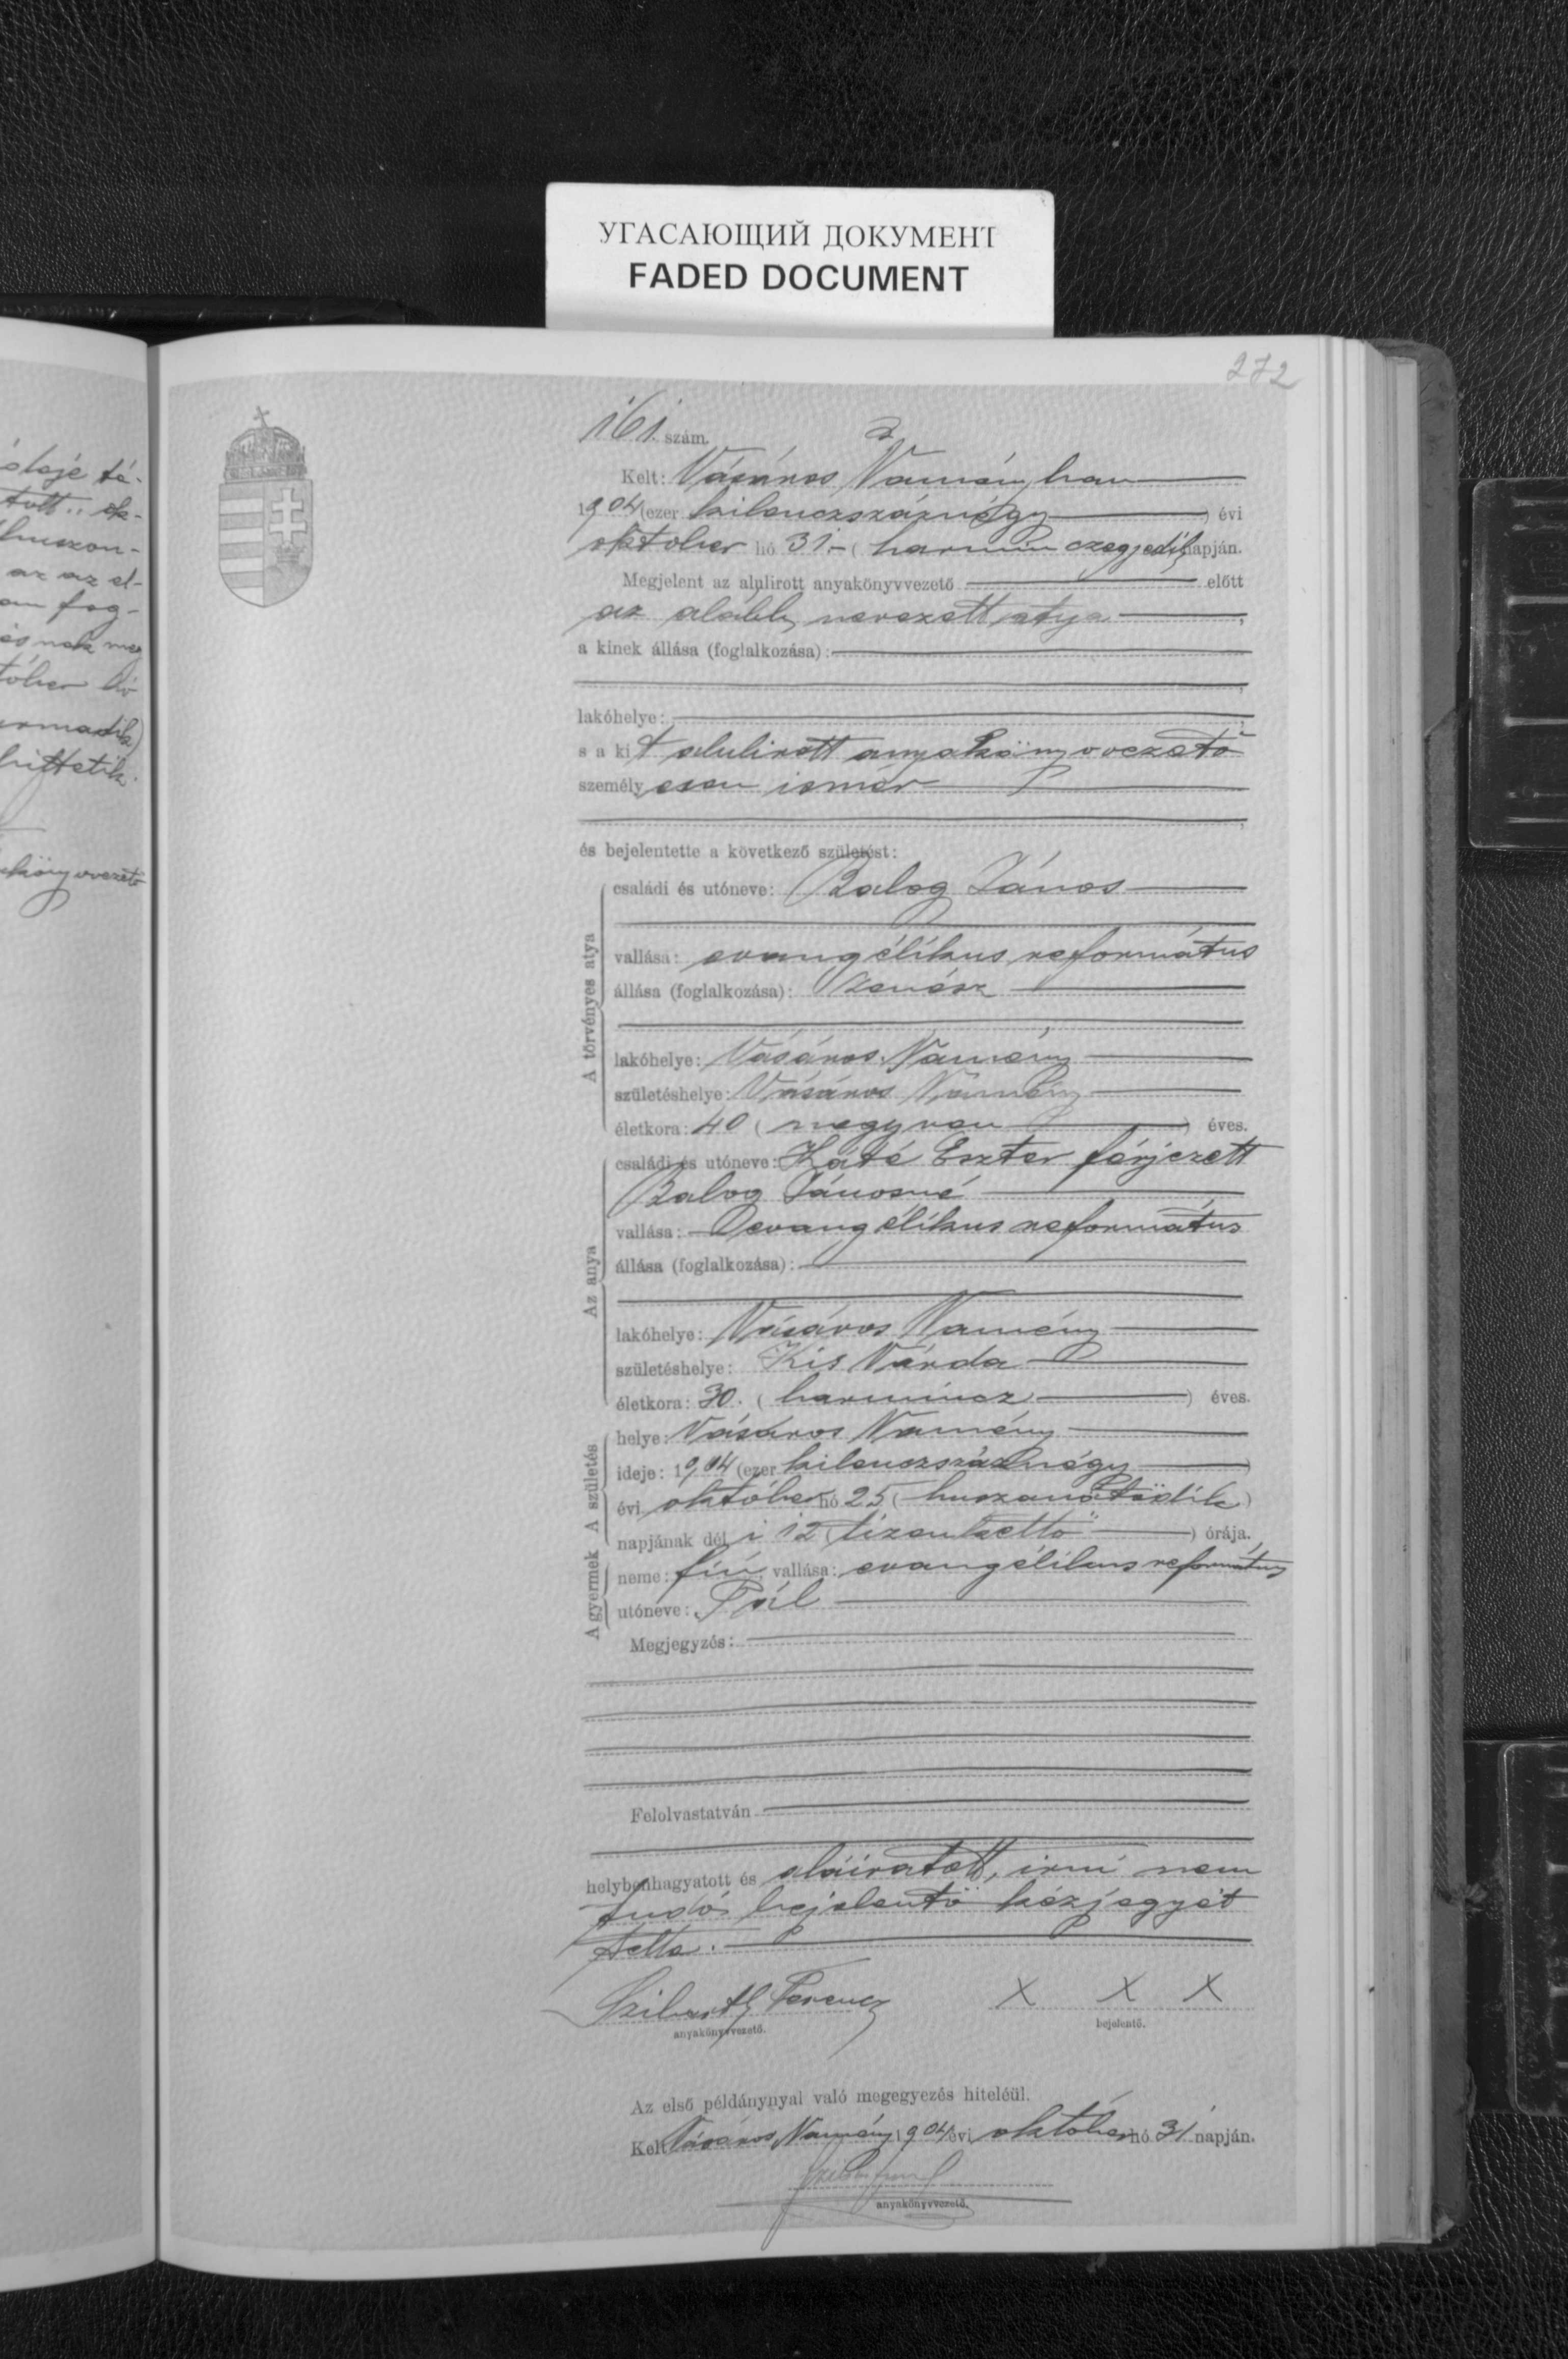 УГАСАЮЩИЙ ДОКУМЕНТ
FADED DOCUMENT
272
161. szám.
Kelt: Vásáros Naményban
1904 (ezer kilenczszáznégy) évi
október hó 31.- (harmin czegyedik) napján.
Megjelent az alulirott anyakönyvvezető előtt
az alább nevezett atya,
a kinek állása (foglalkozása):
lakóhelye:
s a kit alulirott anyakönyvvezető
személyesen ismér
és bejelentette a következő születést:
A törvényes atya
családi és utóneve: Balog János
vallása: evangélikus református
állása (foglalkozása): zenész
lakóhelye: Vásáros Namény
születéshelye: Vásáros Namény
életkora: 40 (negyven) éves.
Az anya
családi és utóneve: Káté Eszter férjezett
Balog Jánosné
vallása: evangélikus református
állása (foglalkozása):
lakóhelye: Vásáros Namény
születéshelye: Kis Várda
életkora: 30. (harmincz) éves.
A születés
helye: Vásáros Namény
ideje: 1904 (ezer kilenczszáznégy)
évi október hó 25 (huszonötödik)
napjának déli 12 (tizenkettő) órája.
A gyermek
neme: fiú, vallása: evangélikus református
utóneve: Pál
Megjegyzés:
Felolvastatván
helybenhagyatott és aláiratott, irni nem
tudó bejelentő kézjegyét
tette.
Ferencz X X X
anyakönyvvezető. bejelentő.
Az első példánynyal való megegyezés hiteléül.
Kelt Vásáros Namény 1904 évi október hó 31 napján.
anyakönyvvezető.
ideje tá-
tott.. ok-
huszon-
az az el-
fog-
ésnek meg
tóber hó
armadik)
hittetik.
könyvvezető